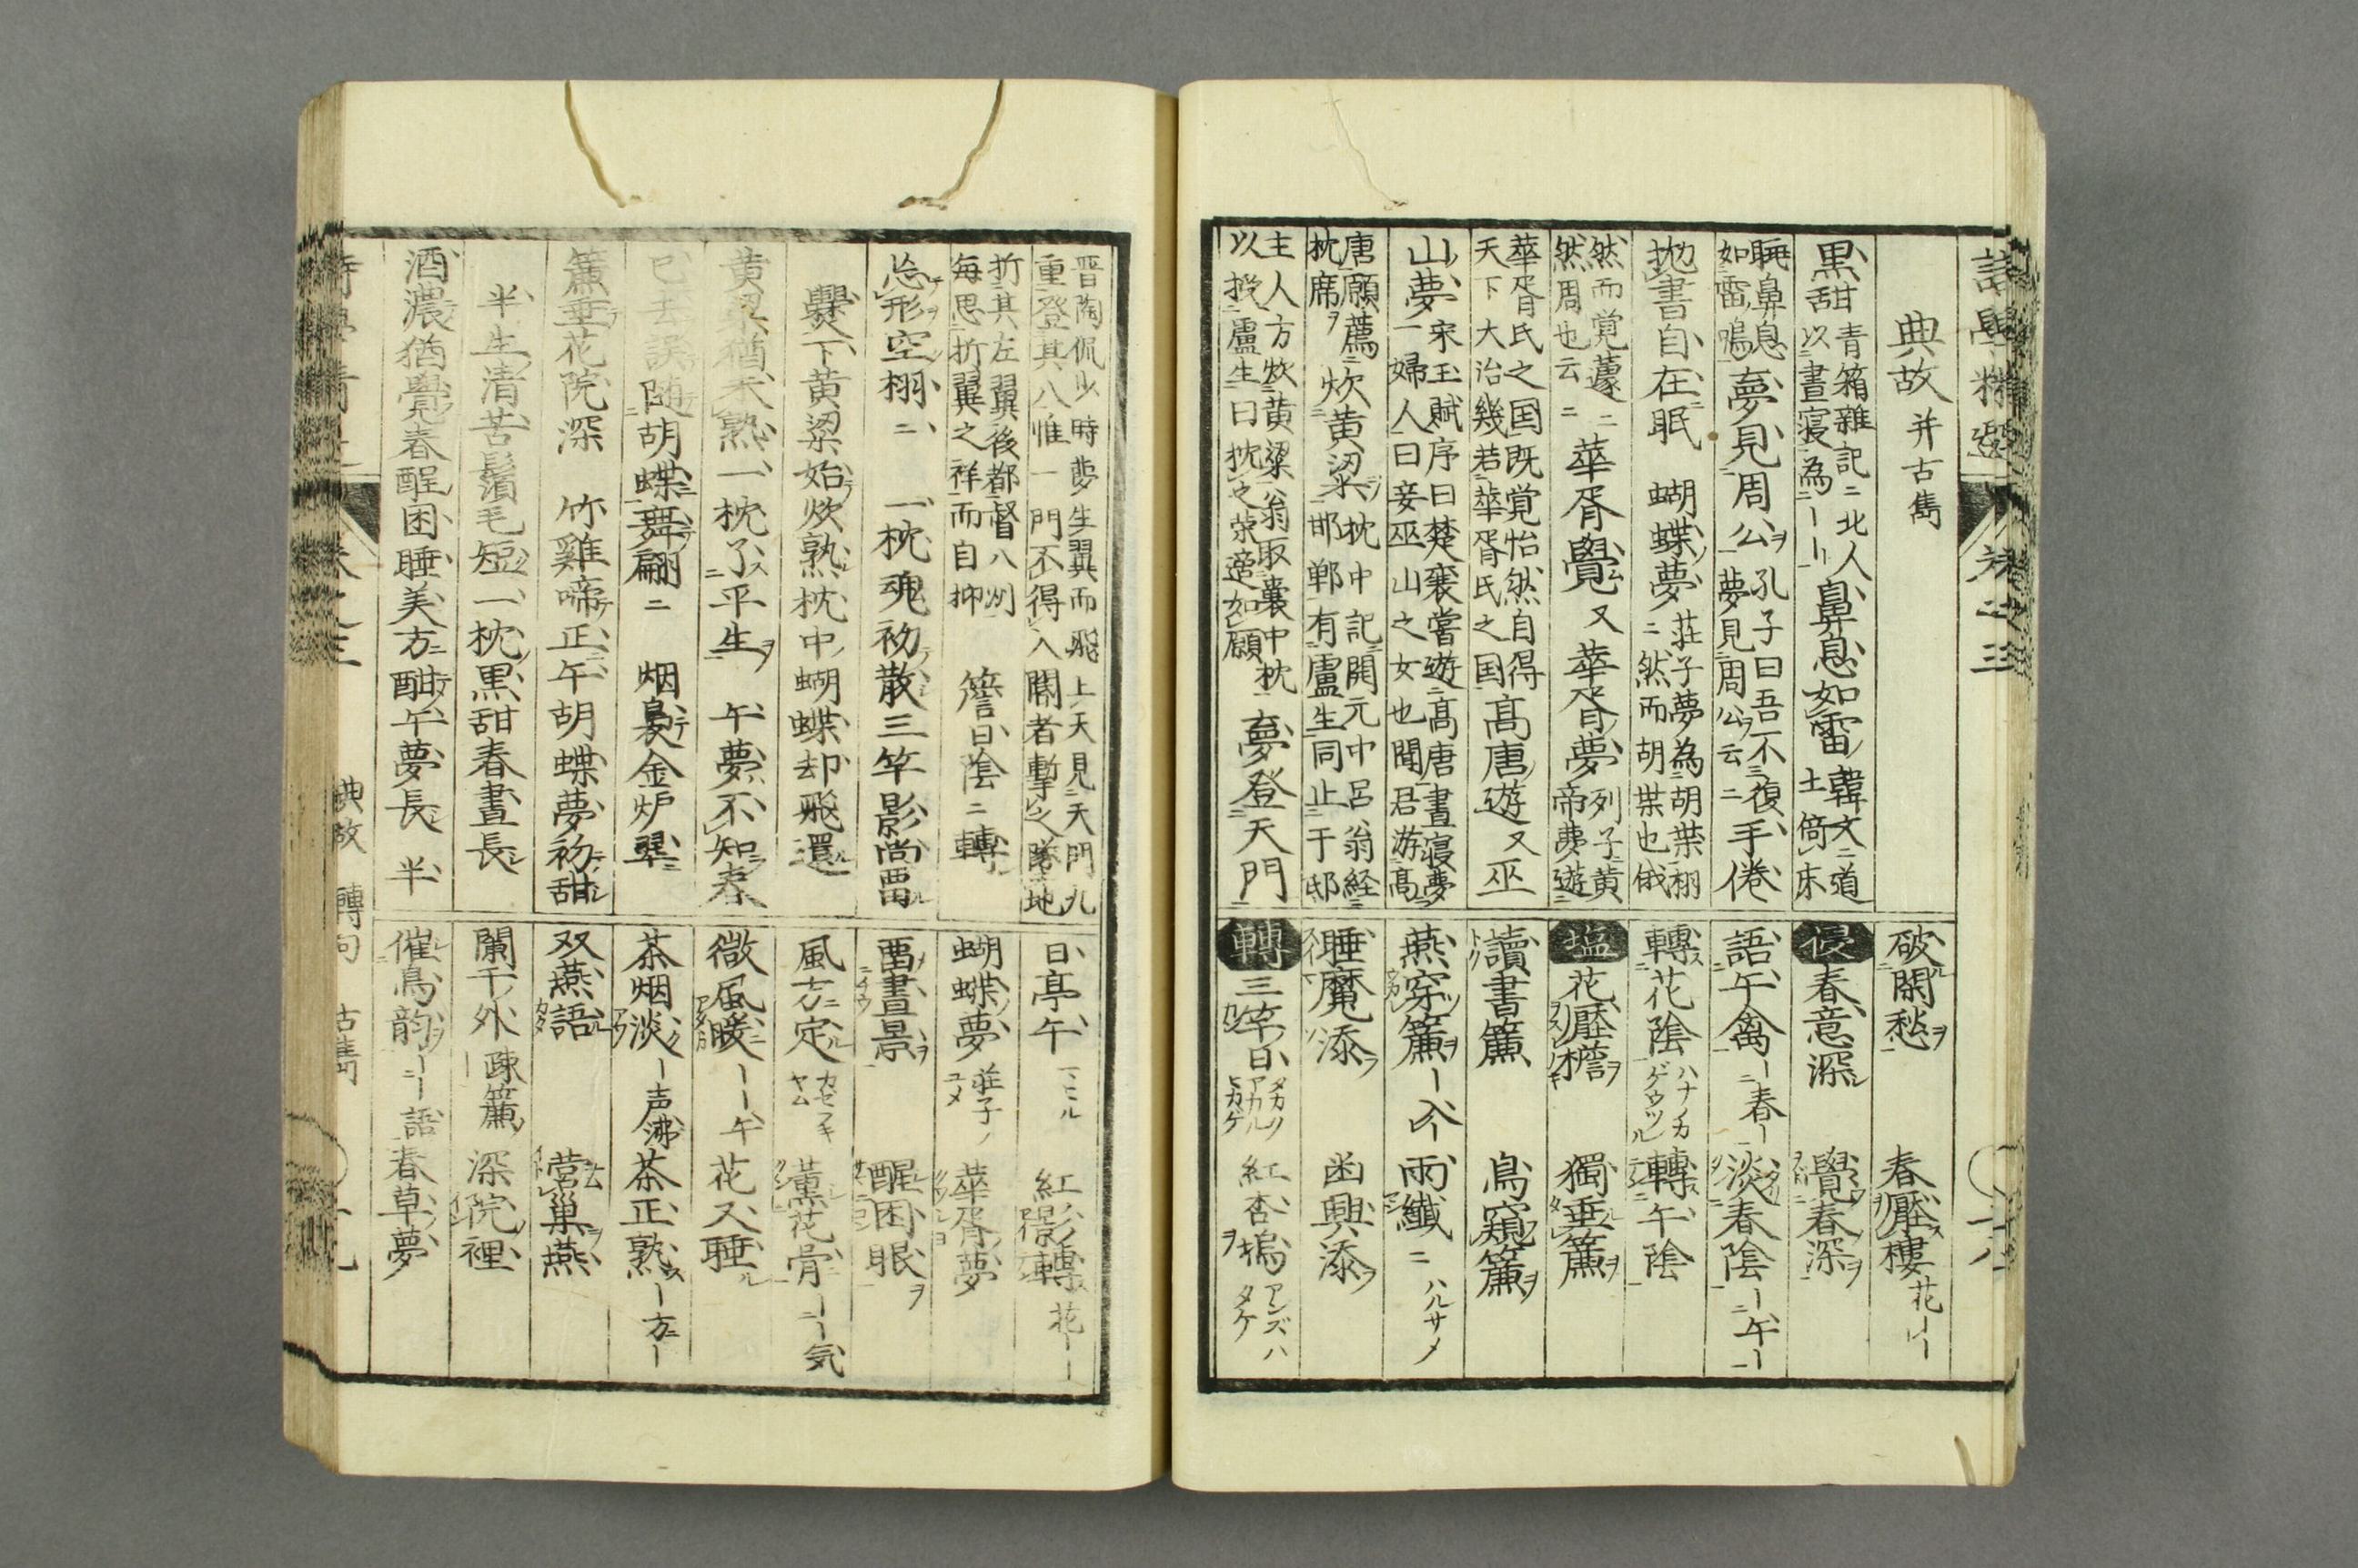 詩學精選 巻之三
典故 并古雋
黒甜 青箱雜記ニ北人以晝寝為ーー 鼻息如雷 韓文ニ道士倚床
睡鼻息如雷鳴 夢見周公 孔子曰吾不復夢見周公云ニ 手倦
抛書自在眠 蝴蝶夢 荘子夢為胡葉栩ニ然而胡葉也俄
然而覚蘧ニ然周也云ニ 華胥覺 又華胥夢 列子黄帝夢遊
華胥氏之国既覚怡然自得天下大治幾若華胥氏之国 髙唐遊 又巫
山夢 宋玉賦序曰楚襄嘗遊髙唐晝寝夢一婦人曰妾巫山之女也聞君游髙
唐願薦枕席 炊黄粱 枕中記開元中呂翁経邯郸有盧生同止于邸
主人方炊黄粱翁取嚢中枕以授盧生曰枕之荣適如願 夢登天門
破閑愁 春壓樓 花ーー
侵 春意深 覺春深
語午禽 ー春ー 淡春陰 ー午ー
轉花陰 ハナノカゲウツル 轉午陰
塩 花壓檐 獨垂簾
讀書簾 鳥窺簾
燕穿簾 ー入ー 雨纖ニ ハルサメ
睡魔添 幽興添
轉 三竿日 タカクアガルヒカゲ 紅杏塢 アンズバタケ
晋陶侃少時夢生翼而飛上天見天門九重登其八惟一門不得入閽者撃之墜地
折其左翼後都督八州每思折翼之祥而自抑 簷日陰ニ轉
忘形空栩ニ 一枕魂初散三竿影尚畱
爨下黄粱始炊熟枕中蝴蝶却飛還
黄粱猶未熟一枕了平生 午夢不知春
已去誤随胡蝶舞翩ニ 烟裊金炉翠
簾垂花院深 竹雞啼正午胡蝶夢初甜
半生清苦鬢毛短一枕黒甜春晝長
酒濃猶覺春酲困睡美方酣午夢長 半
日亭午 マヒル 紅影轉 花ーー
蝴蝶夢 荘子ノユメ 華胥夢
畱晝景 醒困眼
風方定 カゼフキヤム 薫花骨 ーー気
微風暖 ーー午 花又睡
茶烟淡 ー声沸 茶正熟 ー方ー
双燕語 営巣燕
闌干外 疎簾 深院裡
催鳥韵 ーー語 春草夢
典故 轉句 古雋